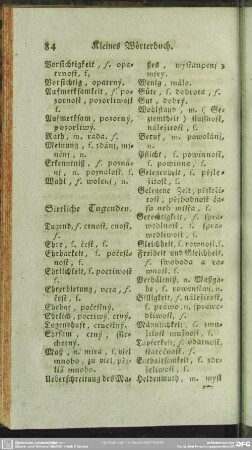 84 Kleines Wörterbuch.
Vorsichtigkeit, f. opa-
trnost, f.
Vorsichtig, opatrný.
Aufmerksamkeit, f. po-
zornost, pozorliwost
f.
Aufmerksam, pozorný,
pozorliwý.
Rath, m. rada. f.
Meinung, f. zdání, mj-
nění, n.
Erkenntniß, f. poznánj,
n. poznalost, f.
Wahl, f. wolenj, n.
Sittliche Tugenden.
Tugend, f. ctnost, cnost,
f.
Ehre, f. čest, f.
Ehrbarkeit, f. počest-
nost, f.
Ehrlichkeit, f. poctiwost
f.
Ehrerbietung,
čest, f.
Ehrbar, počestný.
Ehrlich, poctiwý, ctný.
Tugendhaft, ctnostný.
Ehrsam, ctný,
chetný.
Maß, n. mjra, f.
mnoho, zu viel, pří-
liš mnoho.
Ueberschreitung des Ma-
ßes, wystaupenj z
mjry.
Wenig, málo.
Güte, f. dobrota, f.
Gut, dobrý.
Wohlstand, m. (Ge-
ziemtheit) slušnost,
náležitost, f.
Beruf, m. powolánj,
n.
Pflicht, f. powinnost,
f. powinna, f.
Gelegenheit, f. přjle-
žitost, f.
Gelegene Zeit,
f.
Gerechtigkeit, f. spra-
wedlnost, f. spra-
wedliwost, f.
Gleichheit, f. rownost, f.
Freiheit und Gleichheit,
f. swoboda a row
nost, f.
Verhältniß, n. Maßga-
be, f.
Billigkeit, f. náležitost,
f. práwo, n. sprawe-
dliwost, f.
Männlichkeit, f. zmu-
žilost, f.
Tapferkeit, f. udatnost,
statečnost, f.
Enthaltsamkeit, f. zdrž-
enliwost, f.
Heldenmuth, m. mysl